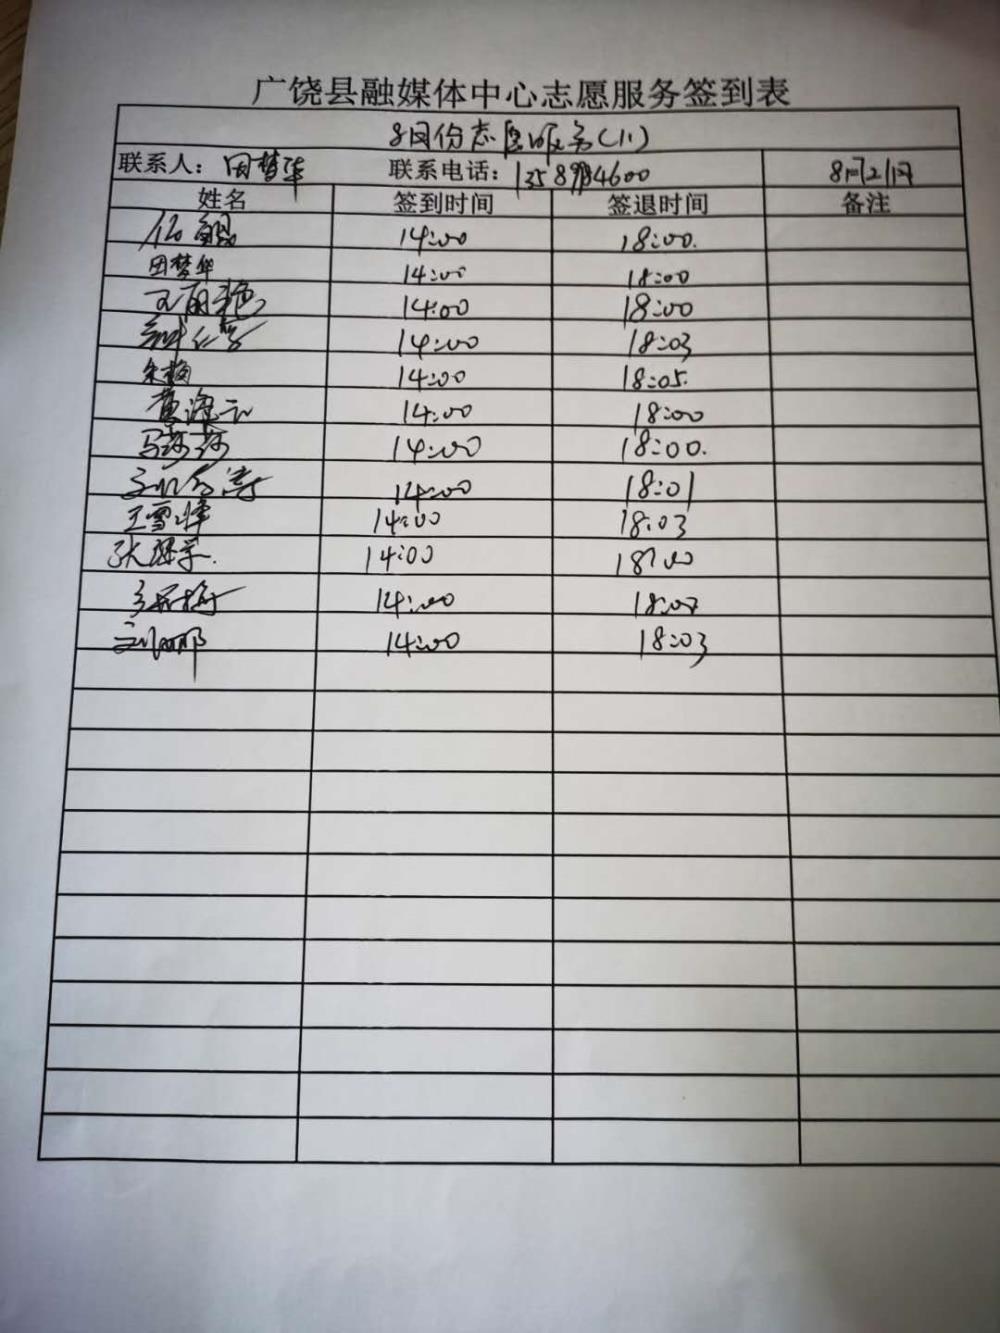 广饶县融媒体中心志愿服务签到表
8月份志愿服务(11)
联系人: 田梦华 联系电话: 4600 8月21日
姓名 签到时间 签退时间 备注
14:00 18:00.
田梦华 14:00 18:00
王丽艳 14:00 18:00
14:00 18:03
朱梅 14:00 18:05.
黄海云 14:00 18:00
马莎莎 14:00 18:00.
14:00 18:01
王雪 14:00 18:03
张 14:00 18:00
梅 14:00
刘娜 14:00 18:03